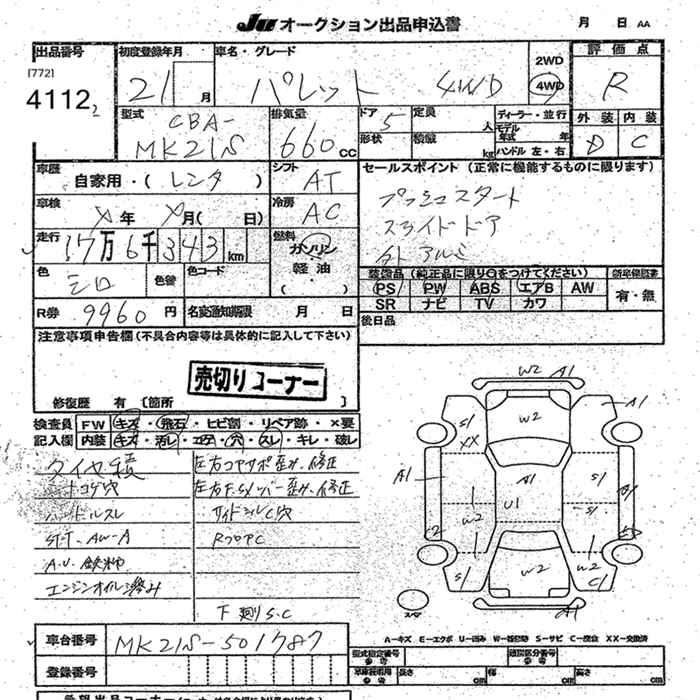 JU オークション出品申込書
月 日 AA
出品番号
[772]
4112 2
初度登録年月
21 月
車名・グレード
パレット 4WD
2WD
4WD
評価点
R
型式
CBA-
MK21S
排気量
660 cc
ドア 5
形状
定員
人
積載
kg
ディーラー・並行
モデル
年式 年
ハンドル 左・右
外装 内装
D C
車歴
自家用・(レンタ )
シフト
AT
車検
X年 X月( 日)
冷房
AC
走行
17万6千343km
燃料
ガソリン
軽油
( )
色
シロ
色替
色コード
R券 9960 円
名変通知期限 月 日
セールスポイント (正常に機能するものに限ります)
プッシュスタート
スライドドア
社外アルミ
装備品(純正品に限り○をつけてください)
新車保証書
PS PW ABS エアB AW
SR ナビ TV カワ
有・無
後日品
注意事項申告欄(不具合内容等は具体的に記入して下さい)
売切りコーナー
修復歴 有 [箇所 ]
検査員
記入欄
FW キズ・飛石・ヒビ割・リペア跡・×要
内装 キズ・汚レ・コゲ・穴・スレ・キレ・破レ
タイヤ積
トコゲ穴
ハンドルスレ
ST-T・AW-A
エンジンオイル滲み
左右コアサポ歪み、修正
左右F.Sメンバー歪み、修正
サイドシルC穴
RフロアC
下廻りS.C
W2 A1
A1
S1
XX
W2
A1
S1
U1
W2
S1
W2
W2
S1
C1
A1
スペア
A-キズ E-エクボ U-凹み W-補修跡 S-サビ C-腐食 XX-交換済
車台番号 MK21S-501787
登録番号
型式指定番号
参考
類別区分番号
参考
車庫証明用
参考
長さ cm
幅 cm
高さ cm